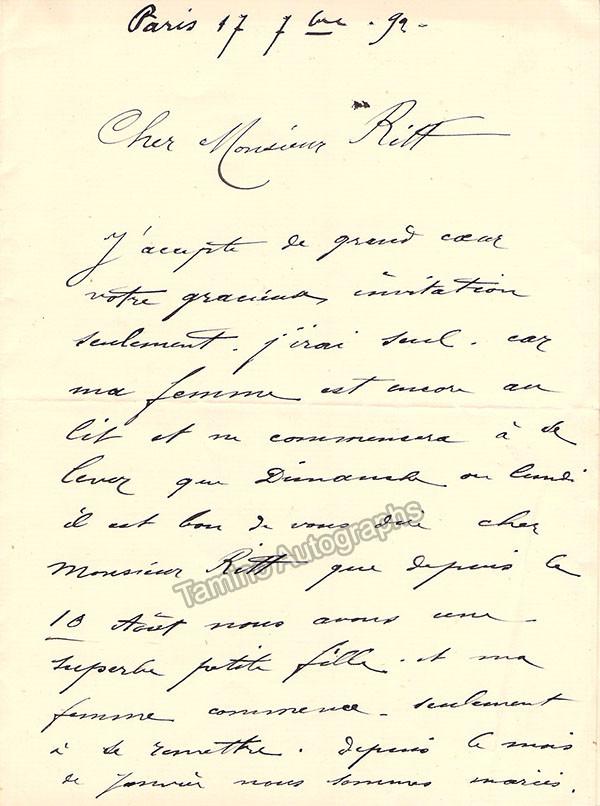 Paris 17 7bre . 92 -
Cher Monsieur Ritt
J'accepte de grand cœur
votre gracieuse invitation
seulement. j'irai seul. car
ma femme est encore au
lit et ne commencera à se
lever que Dimanche ou lundi
il est bon de vous dire cher
Monsieur Ritt que depuis le
Taming Autographs
Août nous avons une
superbe petite fille. et ma
femme commence. seulement
à se remettre. depuis le mois
de Janvier nous sommes mariés.